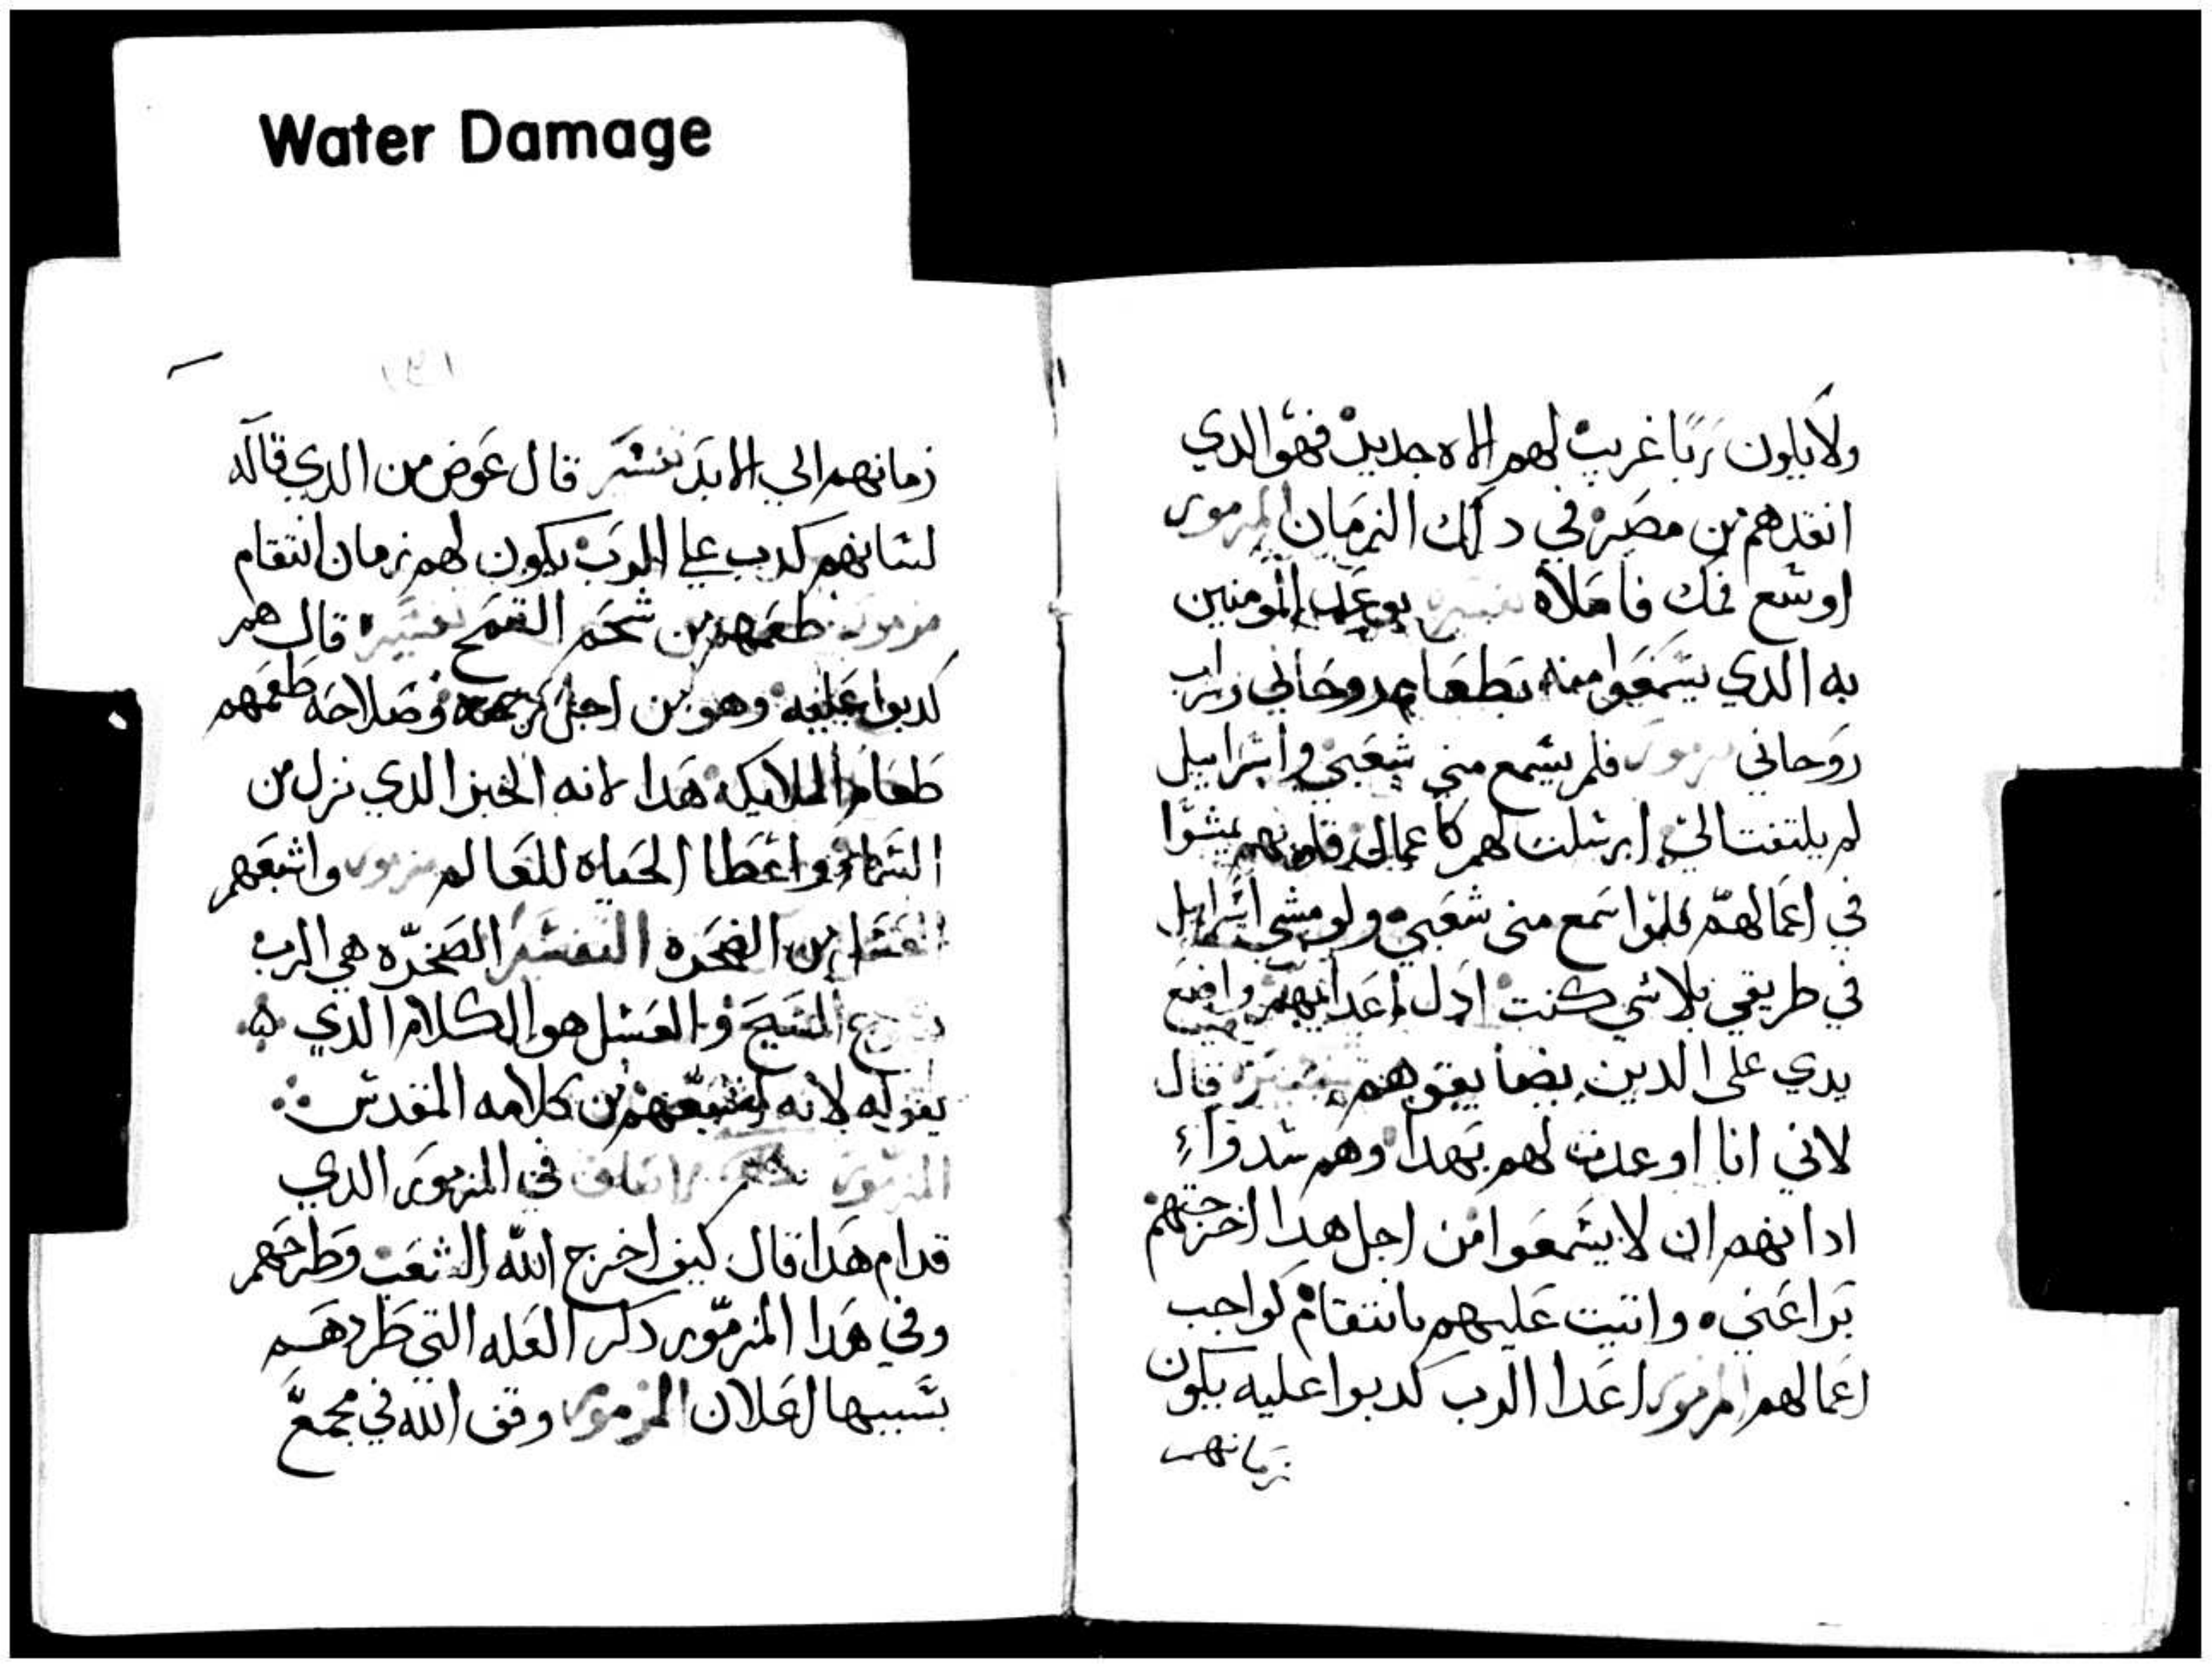 Water Damage
ولا يكون ربا غريب لهم الاه جديد فهو الدي
انقدهم من مصر في دلك الزمان المزمور
اوسع فمك فاملاه تفسير يوعد المومنين
به الدي يسمعوا منه بطعام روحاني وشراب
روحاني مزمور فلم يسمع مني شعبي واسراييل
لم يلتفت الي ارسلت لهم كاعمال قلوبهم يمشوا
في اعمالهم فلوا سمع مني شعبي ولو مشي اسراييل
في طريقي بلاشي كنت ادل اعداييهم واضع
يدي على الدين يضايقوهم تفسير قال
لاني انا اوعدت لهم بهدا وهم سدوا
ادانهم ان لا يسمعوا من اجل هدا اخرجتهم
برا عني وانتبت عليهم بانتقام كواجب
اعمالهم المزمور اعدا الرب كدبوا عليه يكون
زمانهم
زمانهم الي الابد تفسير قال عوض من الدي قاله
لسانهم كدب علي الرب يكون لهم زمان انتقام
مزمور طعمهم من شحم القمح تفسير قال هم
كدبوا عليه وهو من اجل رحمته وصلاحه طعمهم
طعام الملايكه هدا لانه الخبز الدي نزل من
السماء واعطا الحياه للعالم مزمور واشبعهم
العسل من الصخره التفسير الصخره هي الرب
المسيح والعسل هو الكلام الدي
يقوله لانه يشبعهم من كلامه المقدس
المزمور في المزمور الدي
قدام هدا قال كيف اخرج الله الشعب وطرحهم
وفي هدا المزمور دكر العله التي طردهم
بسببها اعلان المزمور وقف الله في مجمع